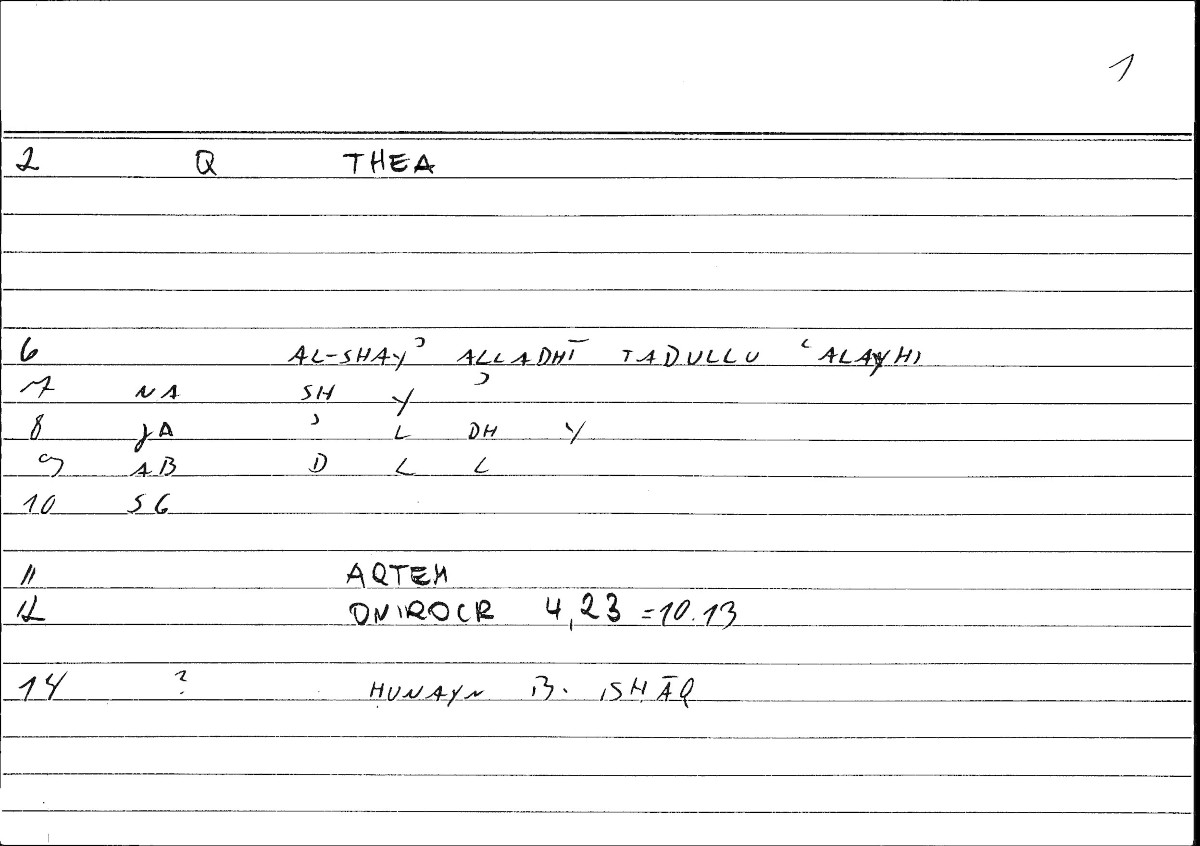 1
2 Q THEA
6 AL-SHAYʾ ALLADHĪ TADULLU ʿALAYHI
7 NA SH Y ʾ
8 JA ʾ L DH Y
9 AB D L L
10 SG
11 AQTEM
12 ONIROCR 4,23 =10.13
14 ? ḤUNAYN B. ISḤĀQ